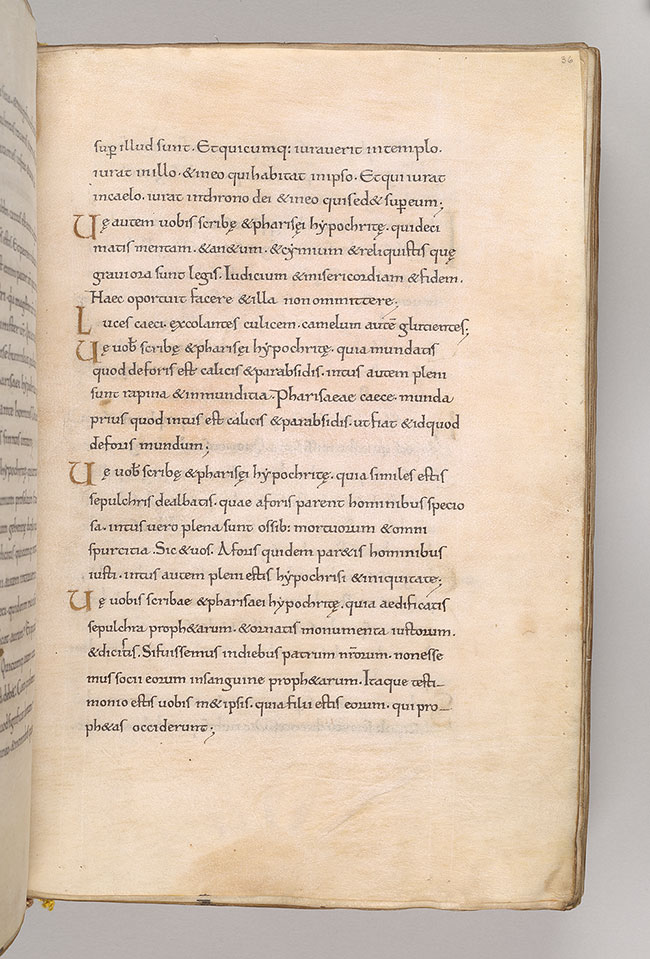 36
sup̄ illud sunt. Et quicumq: iuraverit in templo.
iurat in illo. & in eo qui habitat in ipso. Et qui iurat
in caelo. iurat in throno dei & in eo qui sed& sup eum;
Uę autem uobis scribę & pharisęi hẏpochritę. qui deci
matis mentam. & an&um. & cẏminum & reliquistis quę
grauiora sunt legis. Iudicium & misericordiam & fidem.
Haec oportuit facere & illa non ommittere;
Luces caeci. excolantes culicem. camelum autē glutientes;
Uę uob̄ scribę & pharisęi hẏpochritę. quia mundatis
quod deforis est calicis & parabsidis. intus autem pleni
sunt rapina & inmunditia. Pharisaeae caece. munda
prius quod intus est calicis & parabsidis. ut fiat & id quod
deforis mundum;
Uę uob̄ scribę & pharisęi hẏpochritę. quia similes estis
sepulchris dealbatis. quae aforis parent hominibus specio
sa. intus uero plena sunt ossib: mortuorum & omni
spurcitia. Sic & uos. Aforis quidem par&is hominibus
iusti. intus autem pleni estis hẏpochrisi & iniquitate;
Uę uobis scribae & pharisaei hẏpochritę. quia aedificatis
sepulchra proph&arum. & ornatis monumenta iustorum.
& dicitis. Si fuissemus in diebus patrum nr̄orum. non esse
mus socii eorum in sanguine proph&arum. Itaque testi-
monio estis uobis m&ipsis. quia filii estis eorum. qui pro-
ph&as occiderunt;